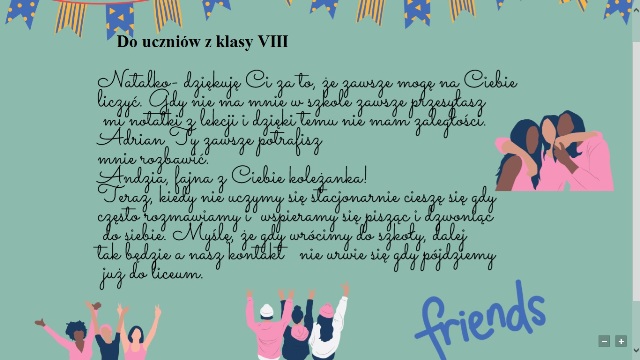 Do uczniów z klasy VIII
Natalko- dziękuję Ci za to, że zawsze mogę na Ciebie
liczyć. Gdy nie ma mnie w szkole zawsze przesyłasz
mi notatki z lekcji i dzięki temu nie mam zaległości.
Adrian, Ty zawsze potrafisz
mnie rozbawić.
Andzia, fajna z Ciebie koleżanka!
Teraz, kiedy nie uczymy się stacjonarnie cieszę się gdy
często rozmawiamy i wspieramy się pisząc i dzwoniąc
do siebie. Myślę, że gdy wrócimy do szkoły, dalej
tak będzie a nasz kontakt nie urwie się gdy pójdziemy
już do liceum.
friends